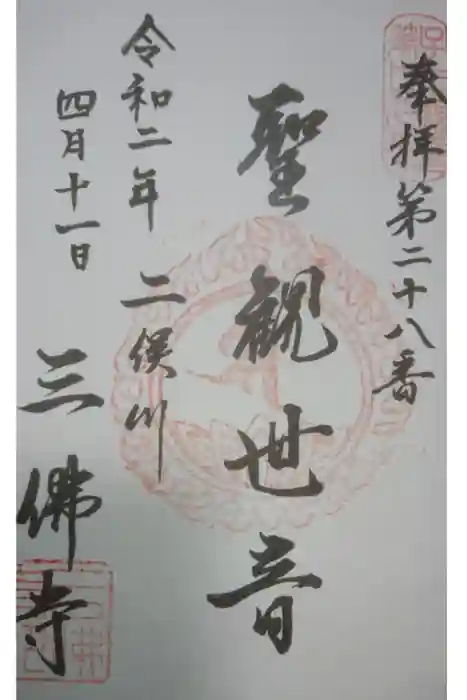 奉拝第二十八番
聖観世音
令和二年 二俣川
四月十一日
三佛寺